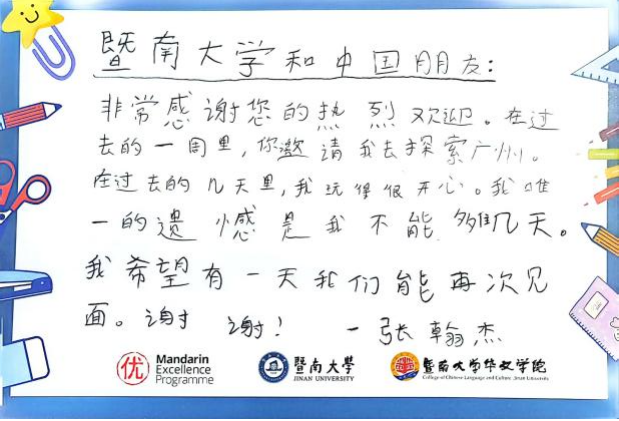 暨南大学和中国朋友：
非常感谢您的热烈欢迎。在过
去的一周里，你邀请我去探索广州。
在过去的几天里，我玩得很开心。我唯
一的遗憾是我不能多几天。
我希望有一天我们能再次见
面。谢谢！ －张翰杰
优 Mandarin Excellence Programme
暨南大學 JINAN UNIVERSITY
暨南大学华文学院
College of Chinese Language and Culture, Jinan University